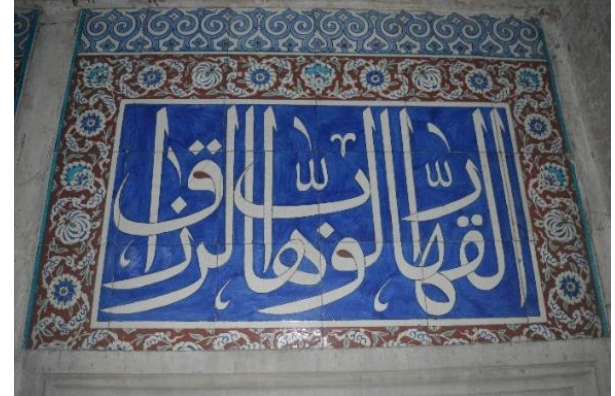 القهار الوهاب الرزاق